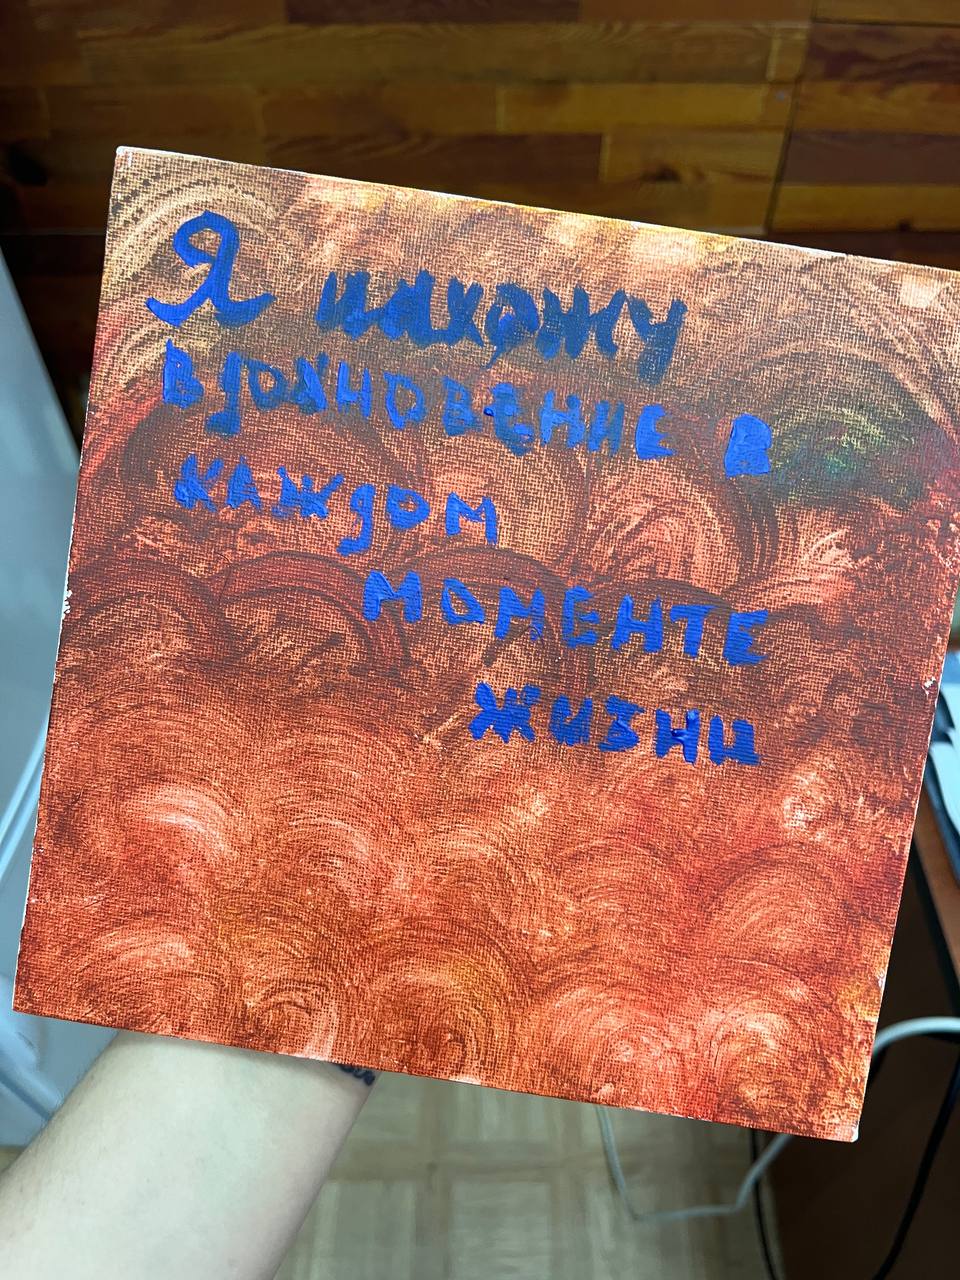 Я нахожу
вдохновение в
каждом
моменте
жизни